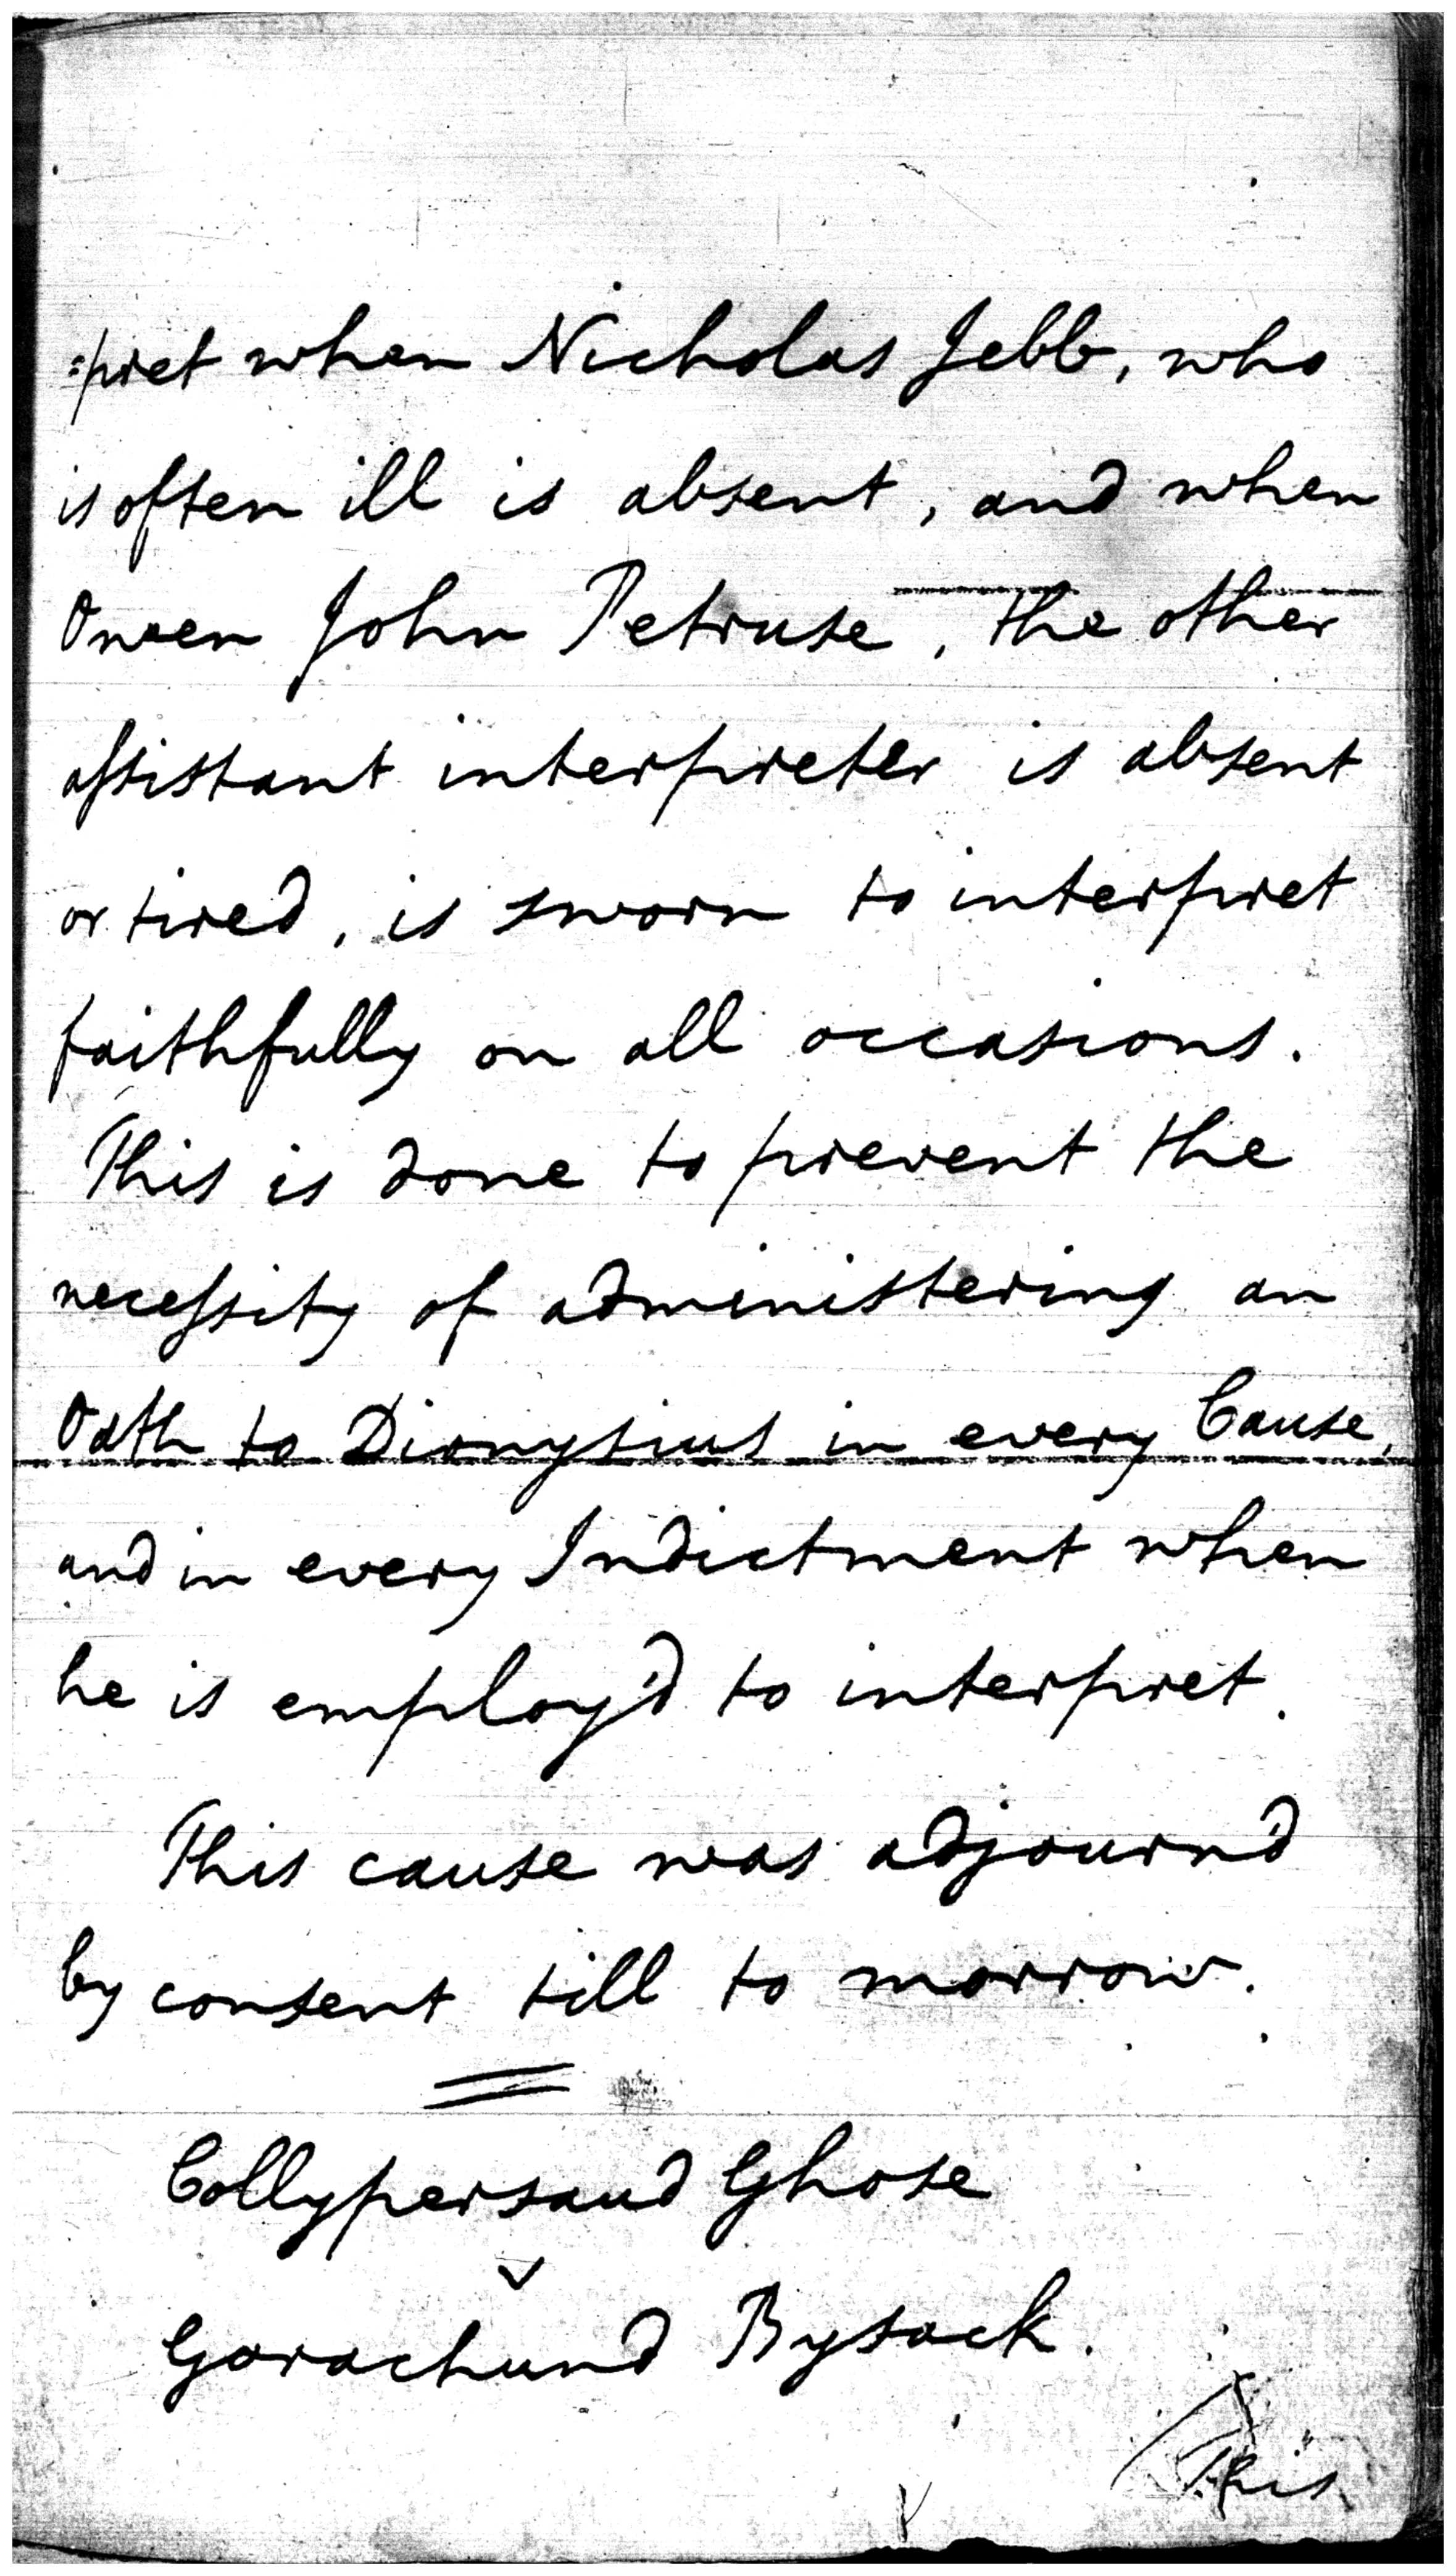 :pret when Nicholas Jebb, who
is often ill is absent, and when
Owen John Petruse, the other
assistant interpreter is absent
or tired, is sworn to interpret
faithfully on all occasions.
This is done to prevent the
necessity of administering an
Oath to Dionysius in every Cause,
and in every Indictment when
he is employ'd to interpret.
This cause was adjourn'd
by consent till to morrow.
Collypersaud Ghose
v
Gorachund Bysack.
This